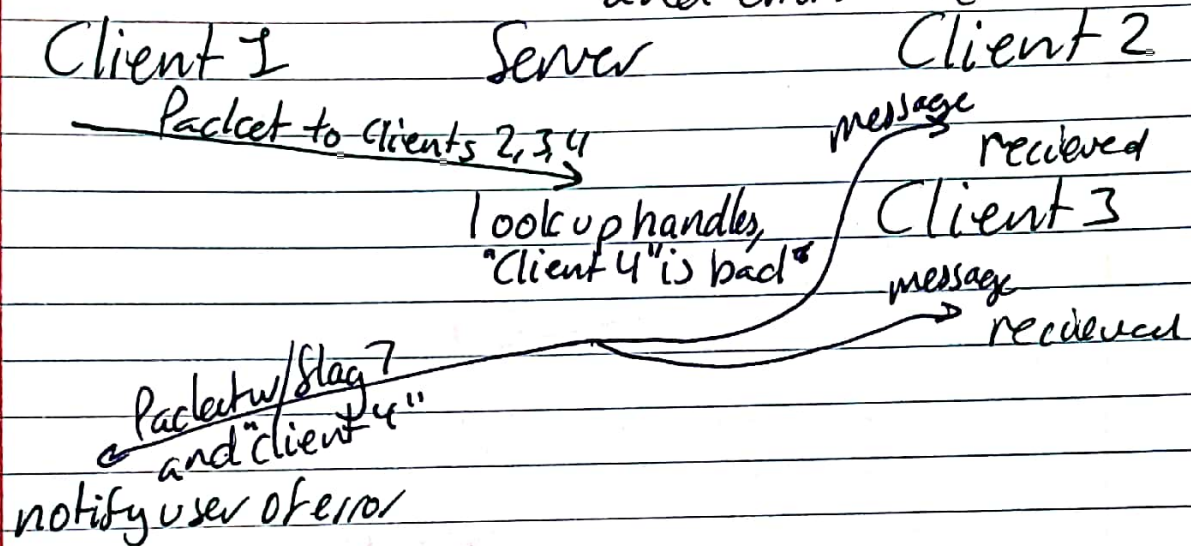 Client 1 Server Client 2
Packet to Clients 2,3,4
message
recieved
look up handles,
"Client 4" is bad"
Client 3
message
recieved
Packet w/ flag 7
and "client 4"
notify user of error